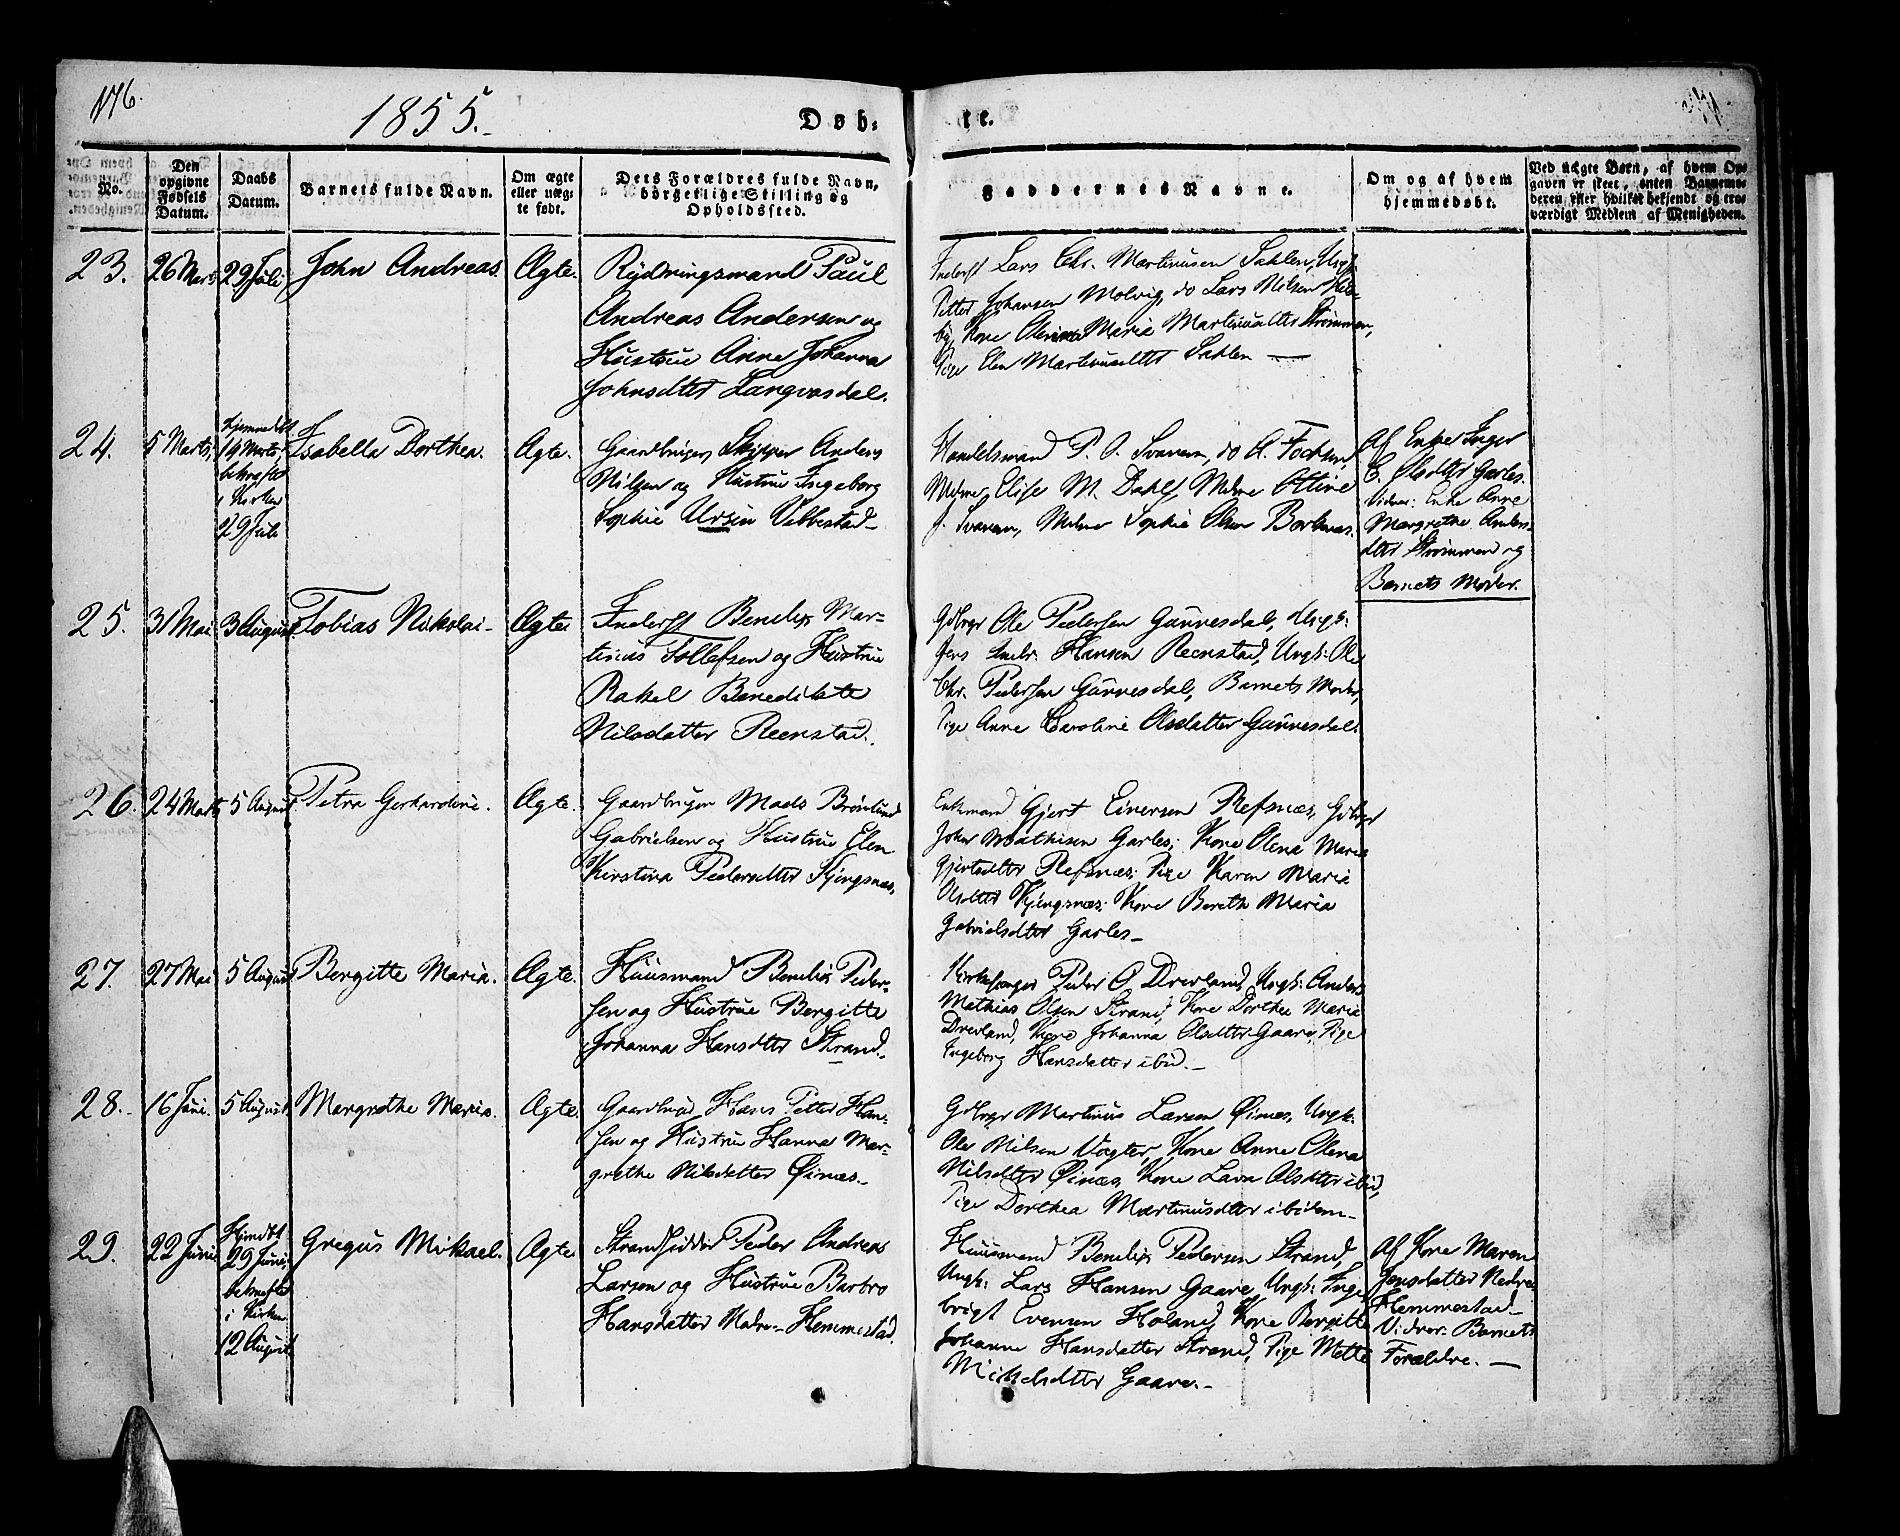 176.
1855.
Døb-
te.
No.
Den
opgivne
Fødsels
Datum.
Daabs
Datum.
Barnets fulde Navn.
Om ægte
eller uæg-
te født.
Dets Forældres fulde Navn,
borgerlige Stilling og
Opholdssted.
Faddernes Navne.
Om og af hvem
hjemmedøbt.
Ved uægte Børn, af hvem Op-
gaven er skeet, enten Barnemo-
deren eller hvilket bekjendt og tro-
værdigt Medlem af Menigheden.
23.
26 Marts
29 Juli
John Andreas.
Ægte.
Rydningsmand Paul
Andreas Andersen og
Hustrue Anne Johanna
Johnsdtter Langvasdal.
Inderst Lars Chr. Martinusen Sahlen, Ungk.
Petter Johansen Molvig, do Lars Nilsen
Kone Olerina Maria Martinusdtter Strømmen,
Pige Elen Martinusdtter Sahlen —
24.
5 Marts,
Hjemmedøbt
19 Marts,
bekræftet
i Kirken
29 Juli
Isabella Dorthea.
Ægte.
Gaardbruger, Skipper Anders
Nilsen og Hustrue Ingeborg
Sophie Ursin Vebbestad
Handelsmand P. O. Svanem, do A. Fochsen,
Mdme Elise M. Dahl, Mdme Ottine
J. Svanem, Mdme Sophie Olsen Borknæs.
Af Enke Inger
C. Olsdtter Garles.
Vidner: Enke Anne
Margrethe Anders-
dtter Strømmen og
Barnets Moder.
25.
31 Mai
3 August
Tobias Nikolai
Ægte.
Inderst Bendix Mar-
tinus Tollefsen og Hustrue
Rakel Benedikte
Nilsdatter Reenstad.
Gdbrgr Ole Pedersen Gunnesdal, Ungk:
Jens Hansen Reenstad, Ungk: Ole
Chr. Pedersen Gunnesdal, Barnets Moder,
Pige Anne Caroline Olsdatter Gunnesdal.
26.
24 Marts
5 August
Petra Gerhardine.
Ægte.
Gaardbruger Mads Brønlund
Gabrielsen og Hustrue Elen
Kirstina Pedersdtter Kjingsnæs.
Enkmand Gjert Einersen Refsnæs, Gdbrgr
John Mathisen Garles; Kone Olena Maria
Gjertsdtter Refsnæs; Pige Karen Maria
Olsdtter Kjingsnæs; Kone Bereth Maria
Gabrielsdtter Garles
27.
27 Mai
5 August
Bergitte Maria.
Ægte.
Huusmand Bendix Peder-
sen og Hustrue Bergitte
Johanna Hansdtter Strand.
Kirkesanger Peder O Drevland, Ungk: Anders
Mathias Olsen Strand, Kone Dorthea Maria
Drevland, Kone Johanna Olsdtter Gaare, Pige
Ingeborg Hansdatter ibid.
28.
16 Juni.
5 August
Margrethe Maria.
Ægte.
Hans Petter Han-
sen og Hustrue Hanna Mar-
grethe Nilsdatter Øinæs.
Gdbrgr Martinus Larsen Øinæs, Ungk:
Ole Nilsen Vogter, Kone Anne Olena
Nilsdtter Øinæs, Kone Lava Olsdtter ibid,
Pige Dorthea Martinusdtter ibidem
29.
22 Juni
Hjemdbt
29 Juni,
bekræftet
i Kirken
12 August
Gregus Mikael.
Ægte
Strandsidder Peder Andreas
Larsen og Hustrue Barbro
Hansdatter Nedre Hemmestad.
Huusmand Bendix Pedersen Strand,
Ungk: Lars Hansen Gaare, Ungk: Inge
brigt Evensen Holand, Kone Bergitte
Johanne Hansdatter Strand, Pige Mette
Mikkelsdtter Gaare.
Af Kone Maren
Jensdatter Nedre
Hemmestad
Vidner Barnets
Forældre. —